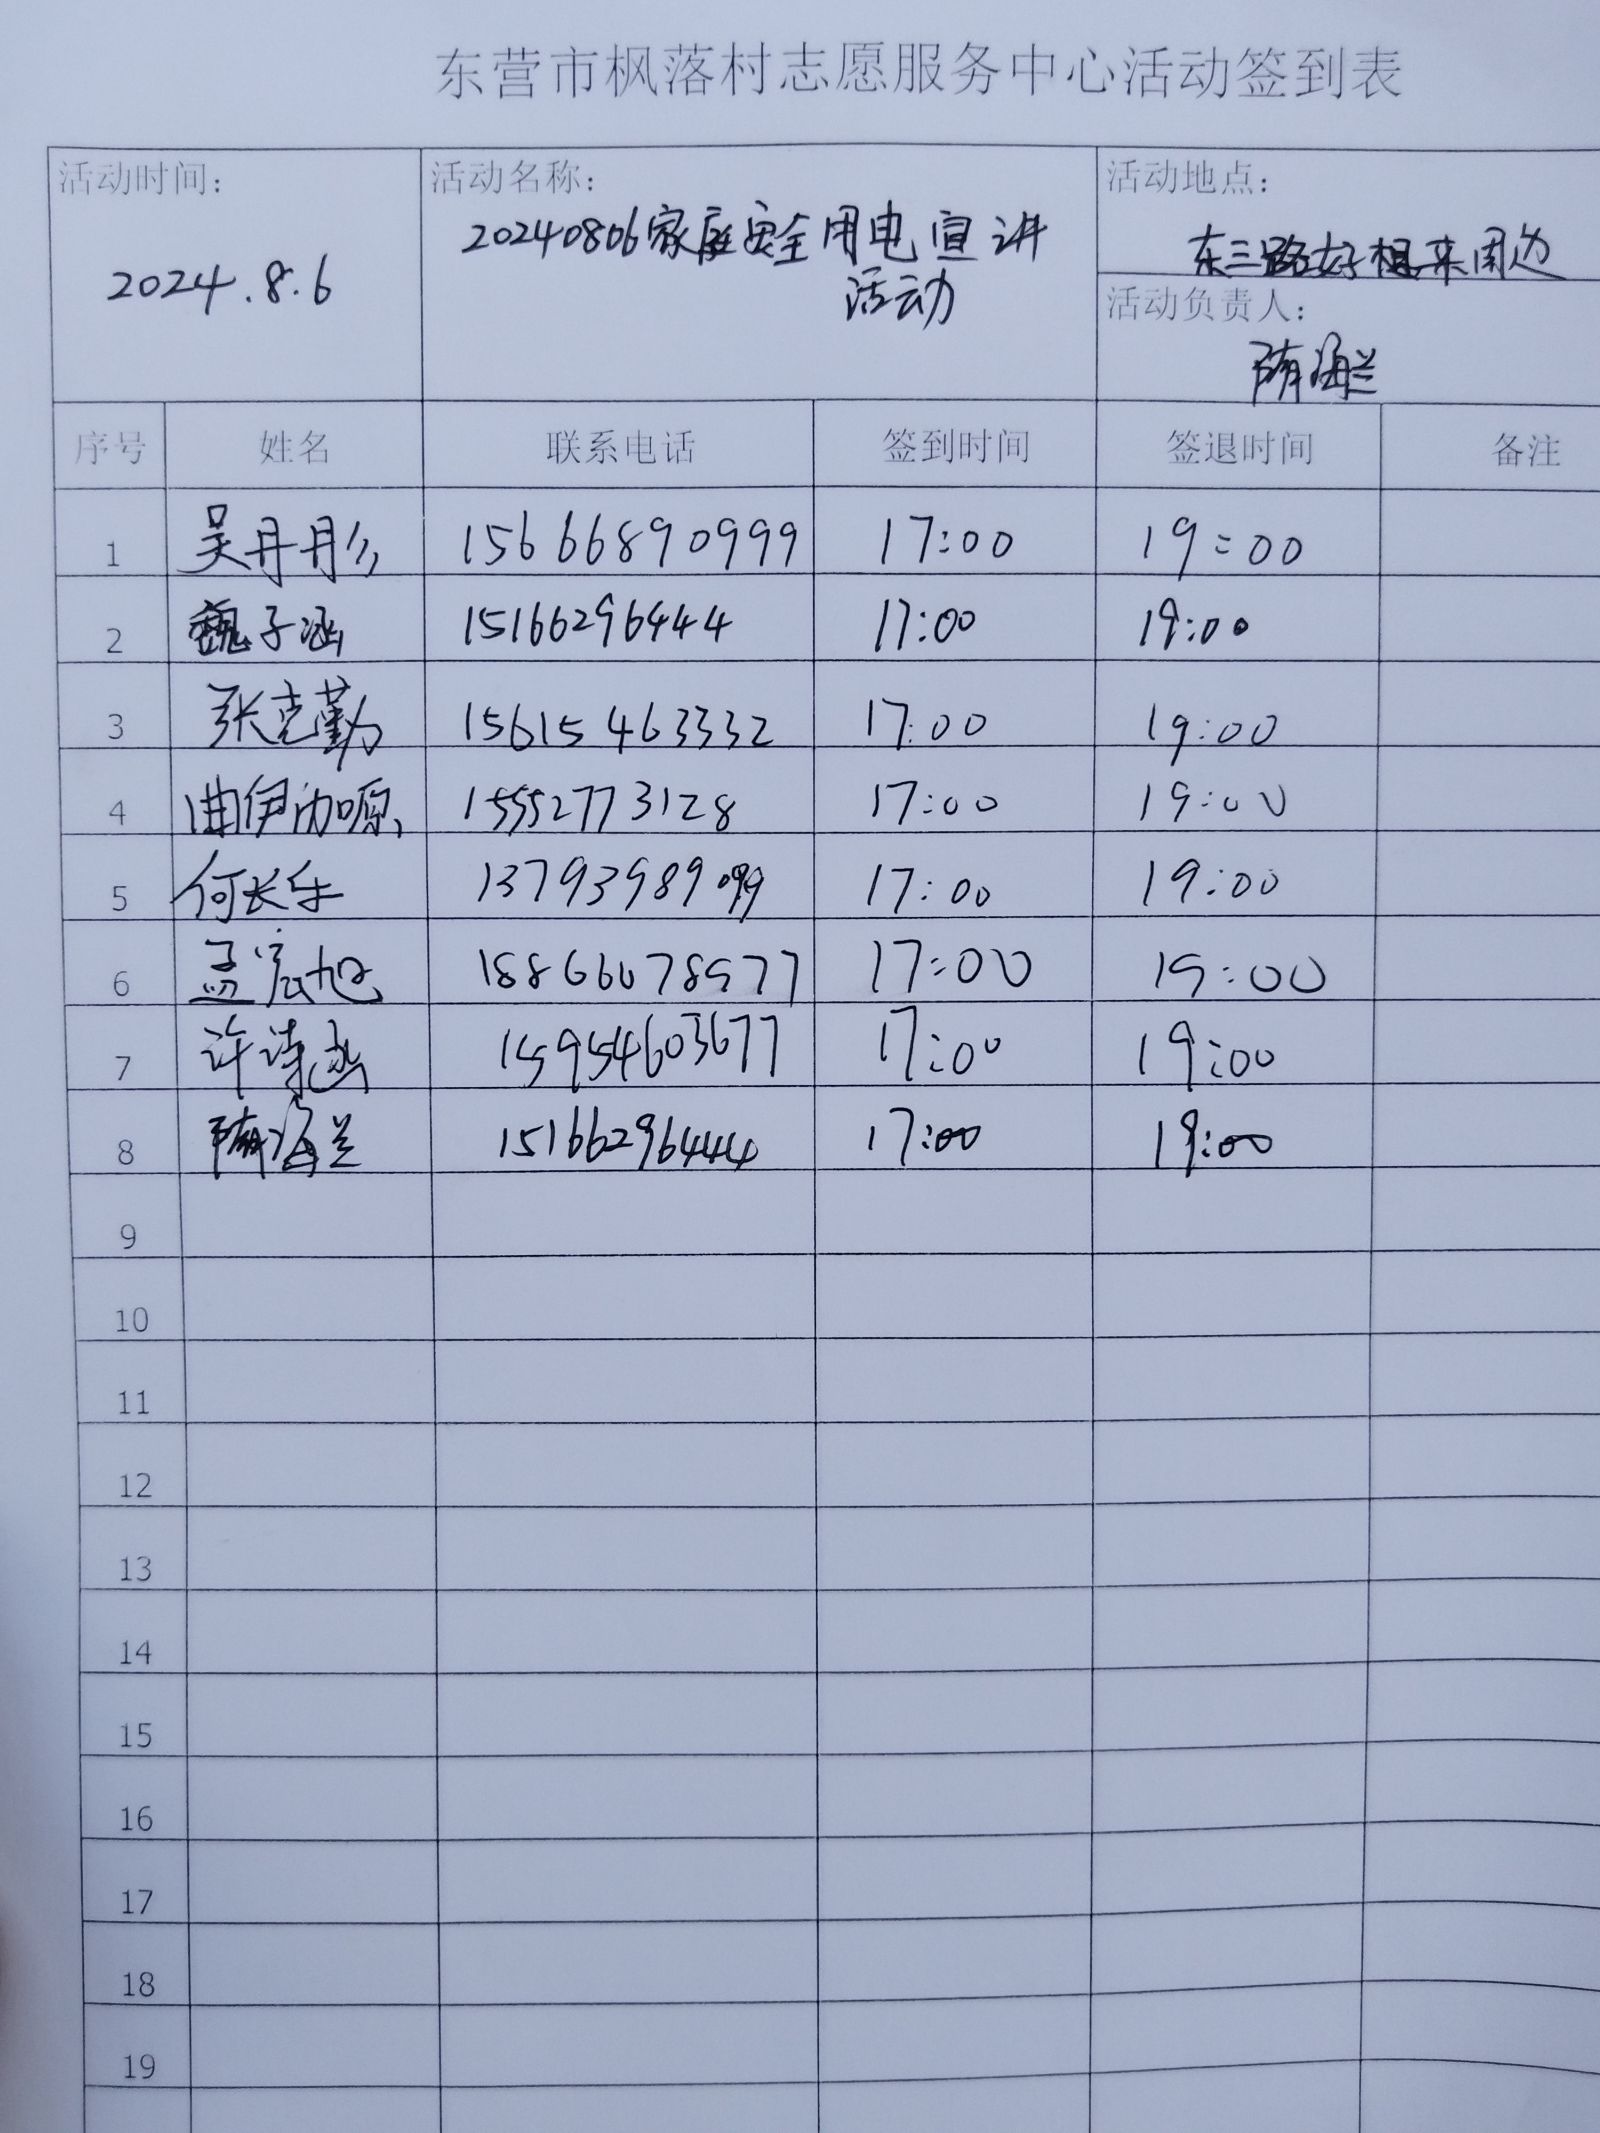 东营市枫落村志愿服务中心活动签到表
活动时间： 活动名称： 活动地点：
2024.8.6 20240806家庭安全用电宣讲 东三路好想来周边
活动 活动负责人：
隋海兰
序号 姓名 联系电话 签到时间 签退时间 备注
1 吴丹彤 15666890999 17:00 19:00
2 魏子涵 15166296444 17:00 19:00
3 张克勤 15615463332 17:00 19:00
4 曲伊 15552773128 17:00 19:00
5 何长乐 13793989099 17:00 19:00
6 孟宏旭 18866078977 17:00 19:00
7 许诗涵 15954603677 17:00 19:00
8 隋海兰 15166296444 17:00 19:00
9
10
11
12
13
14
15
16
17
18
19